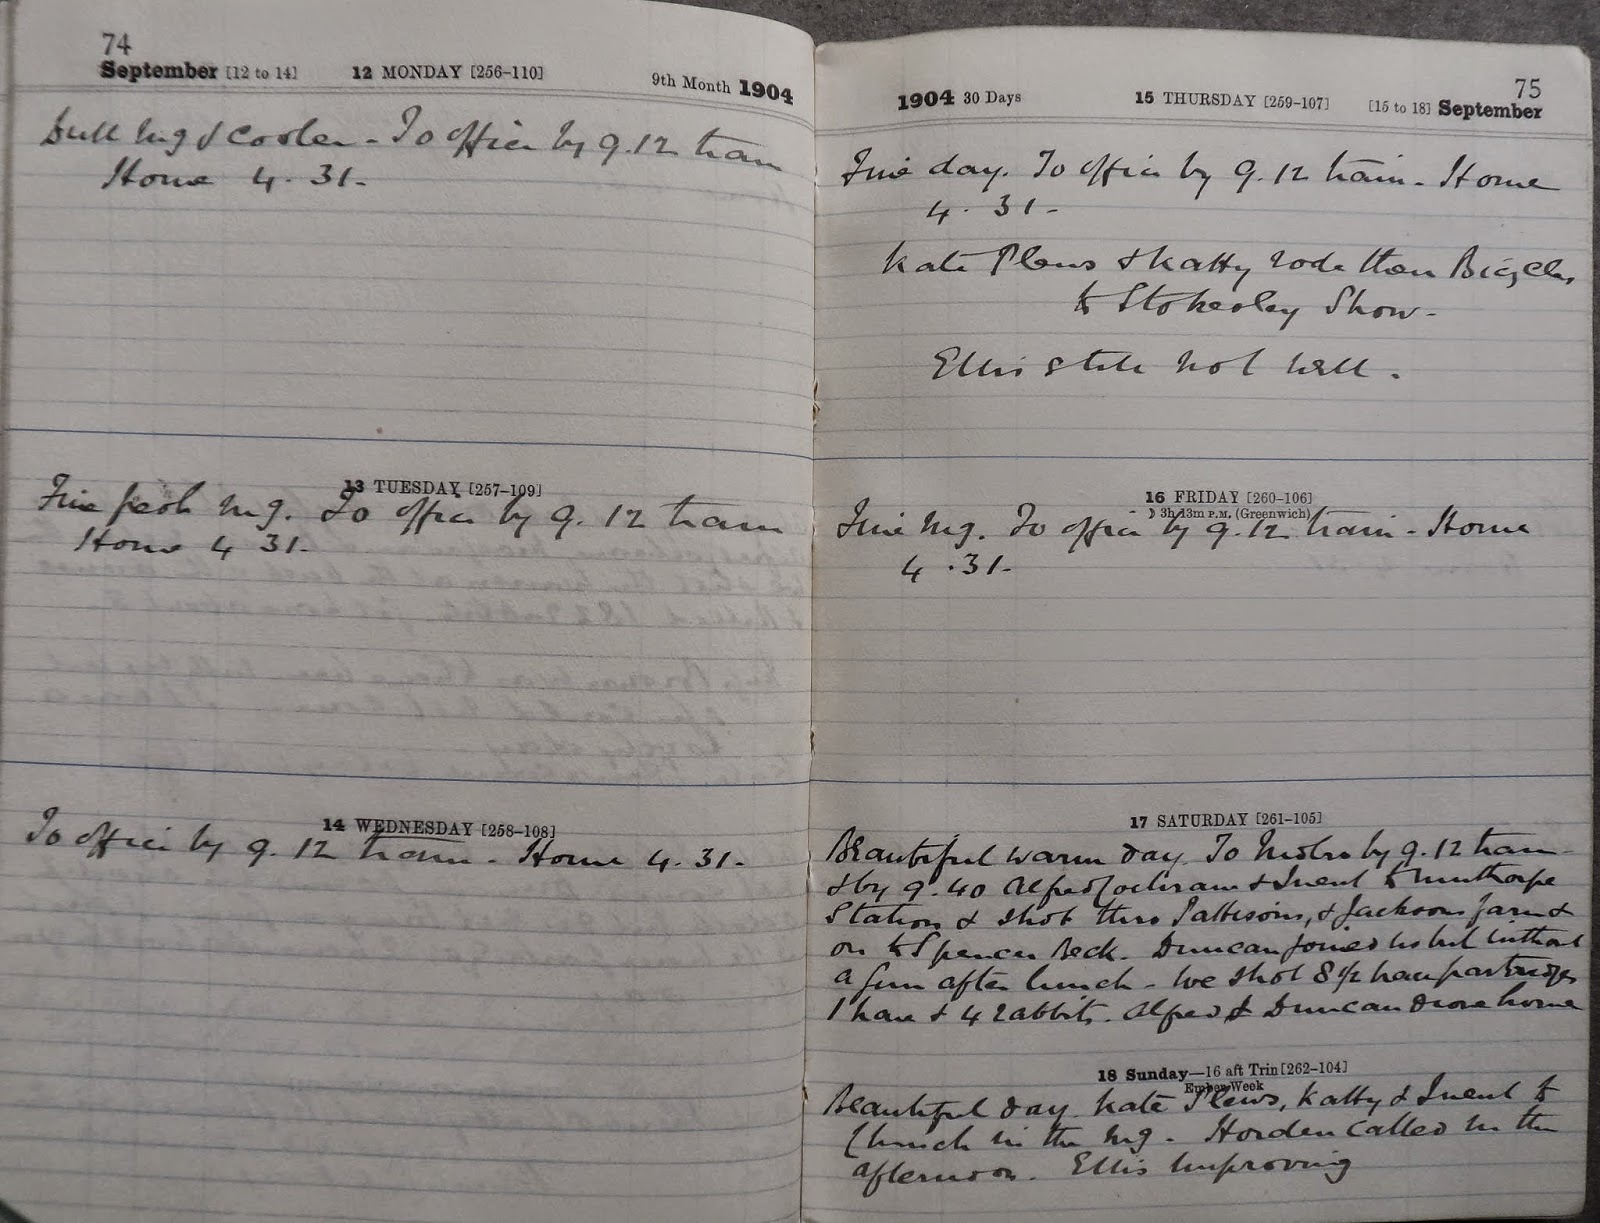 74
September [12 to 14] 12 MONDAY [256-110] 9th Month 1904
Dull Mg & cooler - To office by 9.12 train
Home 4.31.
13 TUESDAY [257-109]
Fine fresh Mg. To office by 9.12 train
Home 4 31.
14 WEDNESDAY [258-108]
To office by 9.12 train - Home 4.31.
75
1904 30 Days 15 THURSDAY [259-107] [15 to 18] September
Fine day. To office by 9.12 train - Home
4.31-
Kate Plews & Katty rode their Bicycles
to Stokesley Show-
Ellis still not well.
16 FRIDAY [260-106]
☽ 3h 13m P.M. (Greenwich)
Fine Mg. To office by 9.12 train - Home
4.31-
17 SATURDAY [261-105]
Beautiful warm day To Mdbro by 9.12 train
& by 9.40 Alfred Cochrane & I went to Nunthorpe
Station & shot thro Pattisons, & Jacksons farm &
on to Spencer Beck. Duncan joined us but without
a gun after lunch - We shot 8½ brace partridges
1 hare & 4 rabbits. Alfred & Duncan drove home
18 Sunday-16 aft Trin [262-104]
Ember Week
Beautiful day Kate Plews, Katty & I went to
Church in the Mg. Horden called in the
afternoon. Ellis improving